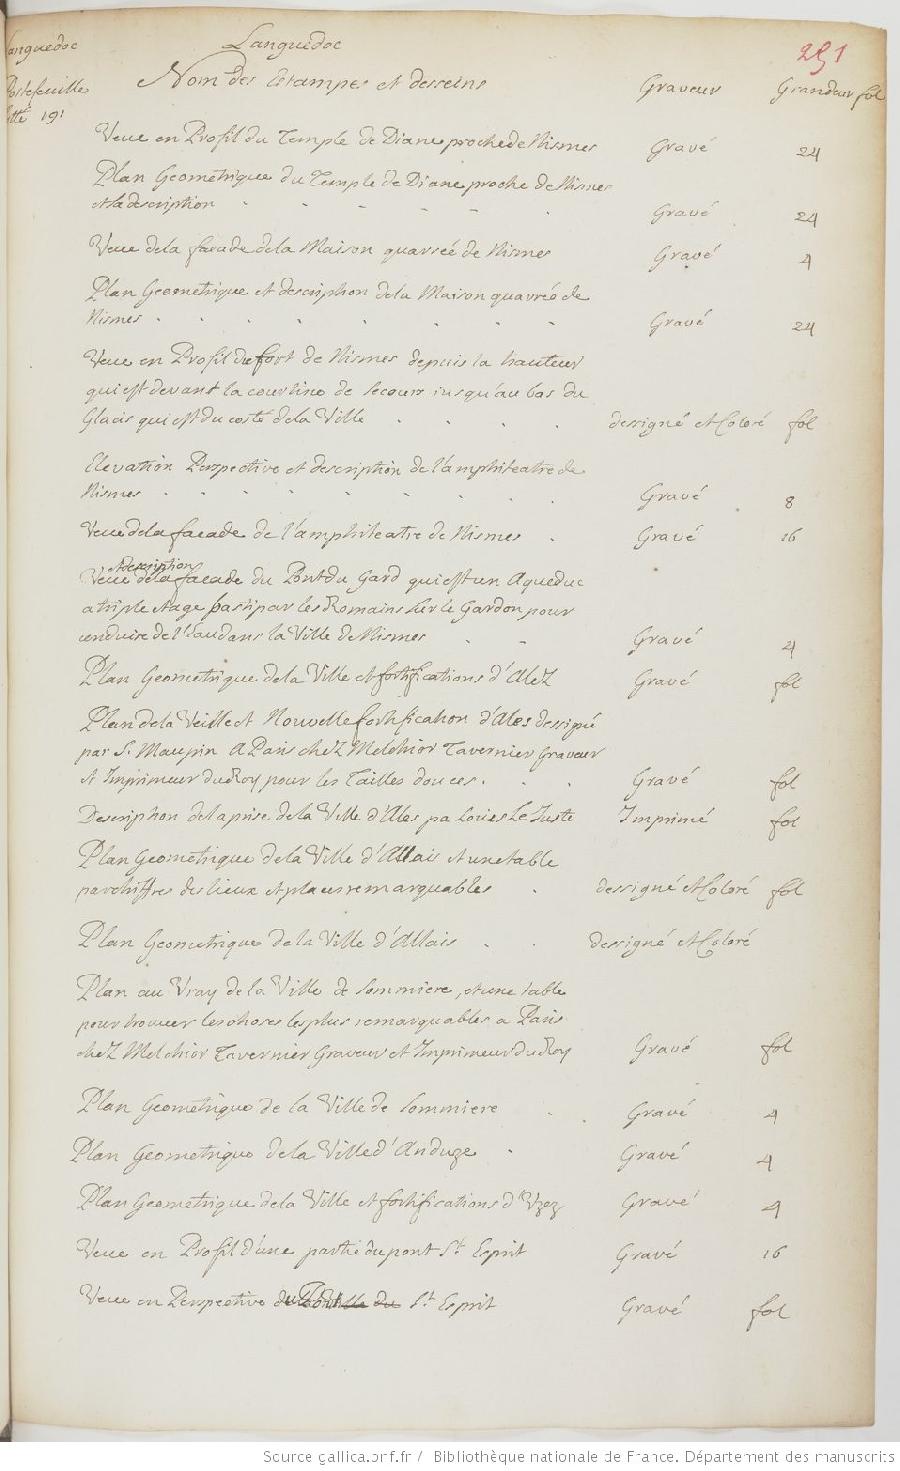 Languedoc
Languedoc
251
Portefeuille
191
Nom des Estampes et desseins Graveur Grandeur fol
Veue en Profil du Temple de Diane proche de Nismes Gravé 24
Plan Geometrique du Temple de Diane proche de Nismes
et la description Gravé 24
Veue de la facade de la Maison quarreé de Nismes Gravé 4
Plan Geometrique et description de la Maison quarreé de
Nismes Gravé 24
Veue en Profil du fort de Nismes depuis la hauteur
qui est devant la courtine de secours jusqu'au bas du
Glacis qui est du costé de la Ville dessigné et Coloré fol
Elevation Perspective et description de l'amphiteatre de
Nismes Gravé 8
Veue de la facade de l'amphiteatre de Nismes Gravé 16
et description
Veue de la facade du Pont du Gard qui est un Aqueduc
a triple etage basti par les Romains sur le Gardon pour
conduire de l'Eau dans la Ville de Nismes Gravé 4
Plan Geometrique de la Ville et fortifications d'Alez Gravé fol
Plan de la Veille et Nouvelle fortification d'Ales dessigné
par S. Maupin A Paris chez Melchior Tavernier Graveur
et Imprimeur du Roy pour les Tailles douces. Gravé fol
Description de la prise de la Ville d'Ales pa Louies Le Juste Imprimé fol
Plan Geometrique de la Ville d'Allais et une table
par chiffres des lieux et places remarquables dessigné et Coloré fol
Plan Geometrique de la Ville d'Allais dessigné et Coloré
Plan au Vray de la Ville de Sommiere, et une table
pour trouver les choses les plus remarquables a Paris
chez Melchior Tavernier Graveur et Imprimeur du Roy Gravé fol
Plan Geometrique de la Ville de Sommiere Gravé 4
Plan Geometrique de la Ville d'Anduze Gravé 4
Plan Geometrique de la Ville et fortifications d'Uzez Gravé 4
Veue en Profil d'une partie du pont St Esprit Gravé 16
Veue en Perspective du St Esprit Gravé fol
Source gallica.bnf.fr / Bibliothèque nationale de France. Département des manuscrits